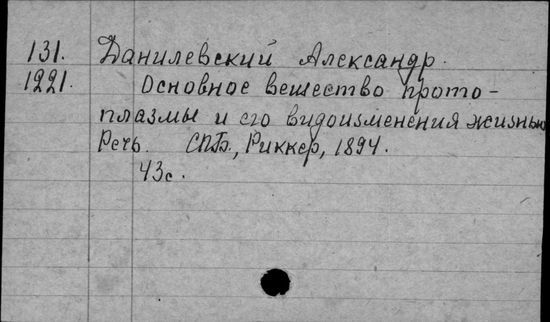 131. Данилевский Александр.
1221. Основное вещество прото-
плазмы и его видоизменения жизнью
Речь. СПБ., Риккер, 1894.
43с.